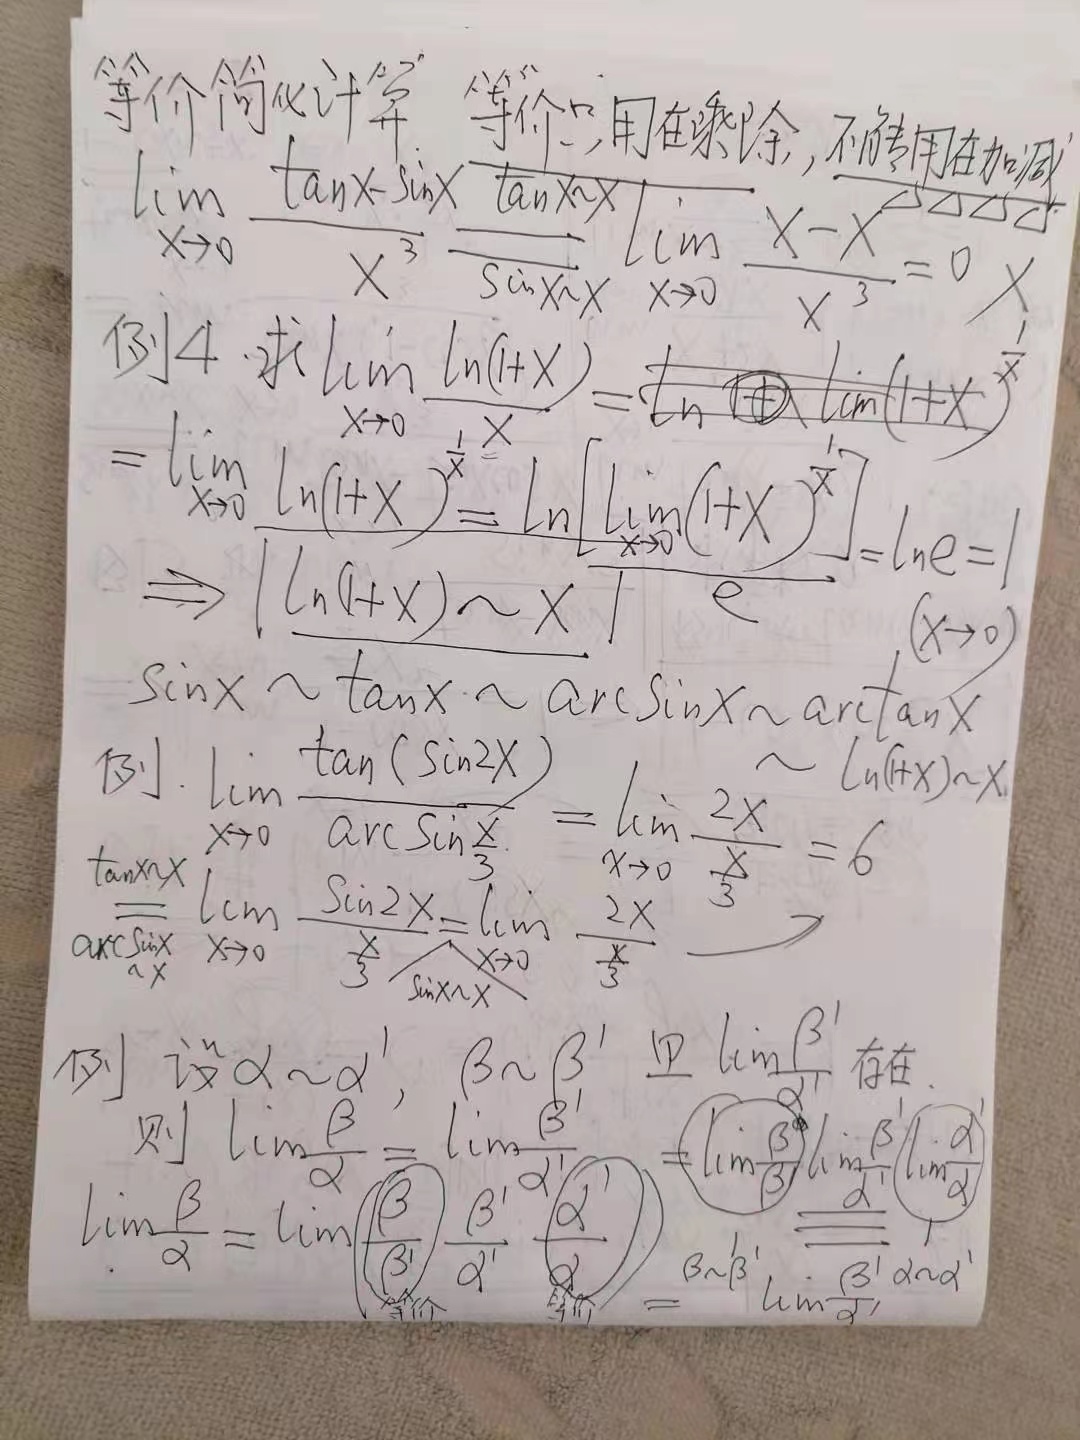 等价简化计算 等价只用在乘除,不能用在加减
lim x→0 (tanx-sinx)/x³ = (tanx~x, sinx~x) lim x→0 (x-x)/x³ = 0 ×
例4.求 lim x→0 ln(1+x)/x = ln lim(1+x)^(1/x)
= lim x→0 ln(1+x)^(1/x) = ln[lim x→0 (1+x)^(1/x)] = lne = 1
e
⇒ |ln(1+x)~x| (x→0)
sinx~tanx~arcsinx~arctanx
~ln(1+x)~x.
例. lim x→0 tan(sin2x)/arcsin(x/3) = lim x→0 2x/(x/3) = 6
tanx~x
= lim x→0 sin2x/(x/3) = lim x→0 2x/(x/3)
arcsinx~x
sinx~x
例 设α~α', β~β' 且 lim β'/α' 存在.
则 lim β/α = lim β'/α' = lim β/β' lim β'/α' lim α'/α
lim β/α = lim (β/β' β'/α' α'/α)
等价 等价
β~β' α~α'
= lim β'/α'